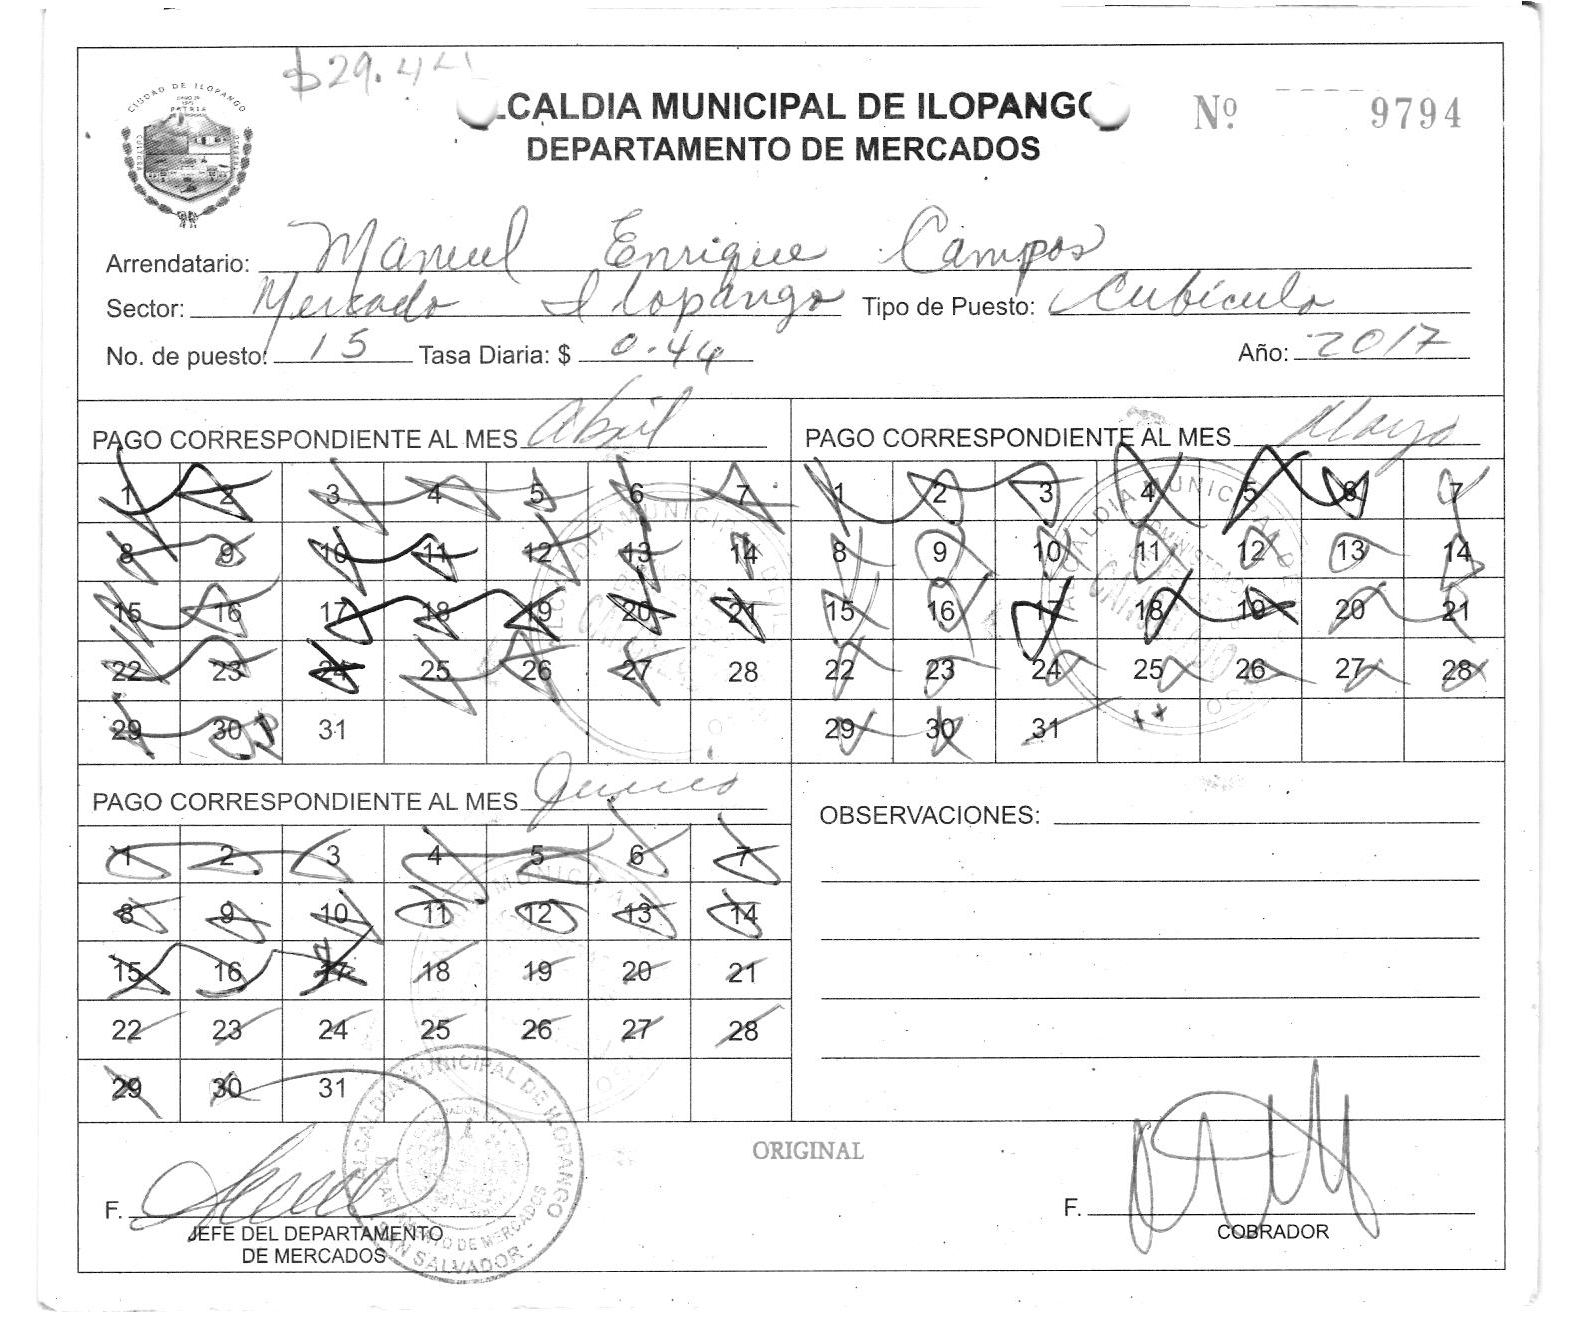 $29.44
CIUDAD DE ILOPANGO
ALCALDIA MUNICIPAL DE ILOPANGO
Nº 9794
DEPARTAMENTO DE MERCADOS
Arrendatario: Manuel Enrique Campos
Sector: Mercado Ilopango Tipo de Puesto: Cubículo
No. de puesto: 15 Tasa Diaria: $ 0.44 Año: 2017
PAGO CORRESPONDIENTE AL MES Abril
1 2 3 4 5 6 7
8 9 10 11 12 13 14
15 16 17 18 19 20 21
22 23 24 25 26 27 28
29 30 31
PAGO CORRESPONDIENTE AL MES Mayo
1 2 3 4 5 6 7
8 9 10 11 12 13 14
15 16 17 18 19 20 21
22 23 24 25 26 27 28
29 30 31
PAGO CORRESPONDIENTE AL MES Junio
1 2 3 4 5 6 7
8 9 10 11 12 13 14
15 16 17 18 19 20 21
22 23 24 25 26 27 28
29 30 31
OBSERVACIONES:
ALCALDIA MUNICIPAL DE ILOPANGO
DEPARTAMENTO DE MERCADOS
SAN SALVADOR
ORIGINAL
F.
JEFE DEL DEPARTAMENTO
DE MERCADOS
F.
COBRADOR